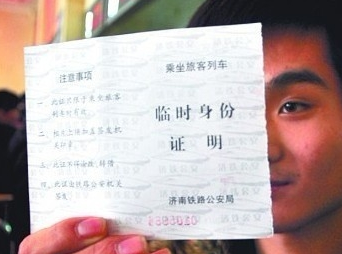 注意事项
一、此证只限于乘坐旅客
列车时有效。
二、相片上须加盖签发机
关印章。
三、此证不得涂改、转借
四、此证由铁路公安机关
签发。
乘坐旅客列车
临时身份
证明
济南铁路公安局